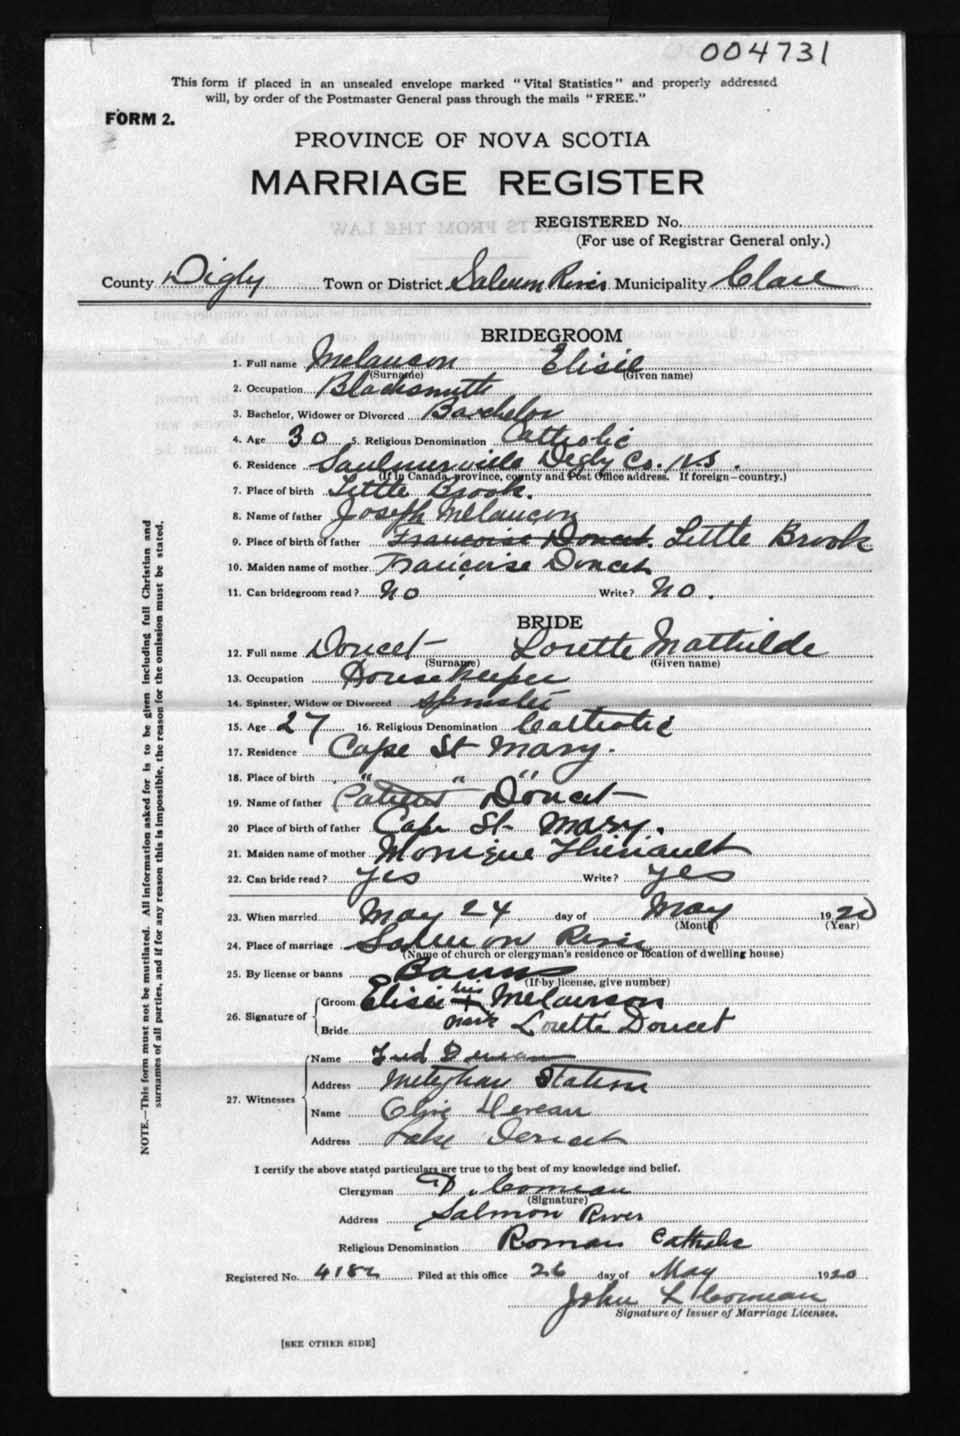 004731
This form if placed in an unsealed envelope marked "Vital Statistics" and properly addressed
will, by order of the Postmaster General pass through the mails "FREE."
FORM 2.
PROVINCE OF NOVA SCOTIA
MARRIAGE REGISTER
REGISTERED No.
(For use of Registrar General only.)
County Digby Town or District Salmon River Municipality Clare
BRIDEGROOM
1. Full name Melancon Elisie
(Surname) (Given name)
2. Occupation Blacksmith
3. Bachelor, Widower or Divorced Bachelor
4. Age 30 5. Religious Denomination Catholic
6. Residence Saulnierville Digby Co. N.S.
(If in Canada, province, county and Post Office address. If foreign—country.)
7. Place of birth Little Brook.
8. Name of father Joseph Melancon
9. Place of birth of father Francoise Doucet. Little Brook
10. Maiden name of mother Francoise Doucet
11. Can bridegroom read? No Write? No.
BRIDE
12. Full name Doucet Lorette Mathilde
(Surname) (Given name)
13. Occupation Housekeeper
14. Spinster, Widow or Divorced Spinster
15. Age 27 16. Religious Denomination Catholic
17. Residence Cape St Mary.
18. Place of birth " " "
19. Name of father Doucet
20 Place of birth of father Cape St Mary.
21. Maiden name of mother Monique Thériault
22. Can bride read? Yes Write? Yes
23. When married May 24 day of May 1920
(Month) (Year)
24. Place of marriage Salmon River
(Name of church or clergyman's residence or location of dwelling house)
25. By license or banns Banns
(If by license, give number)
26. Signature of Groom Elisie his + mark Melanson
Bride Lorette Doucet
27. Witnesses
Name Fred
Address Meteghan Station
Name Olive Deveau
Address Lake Doucet
I certify the above stated particulars are true to the best of my knowledge and belief.
Clergyman D. Comeau
(Signature)
Address Salmon River
Religious Denomination Roman Catholic
Registered No. 4182 Filed at this office 26 day of May 1920
John L Comeau
Signature of Issuer of Marriage Licenses.
[SEE OTHER SIDE]
NOTE.—This form must not be mutilated. All information asked for is to be given including full Christian and
surnames of all parties, and if for any reason this is impossible, the reason for the omission must be stated.